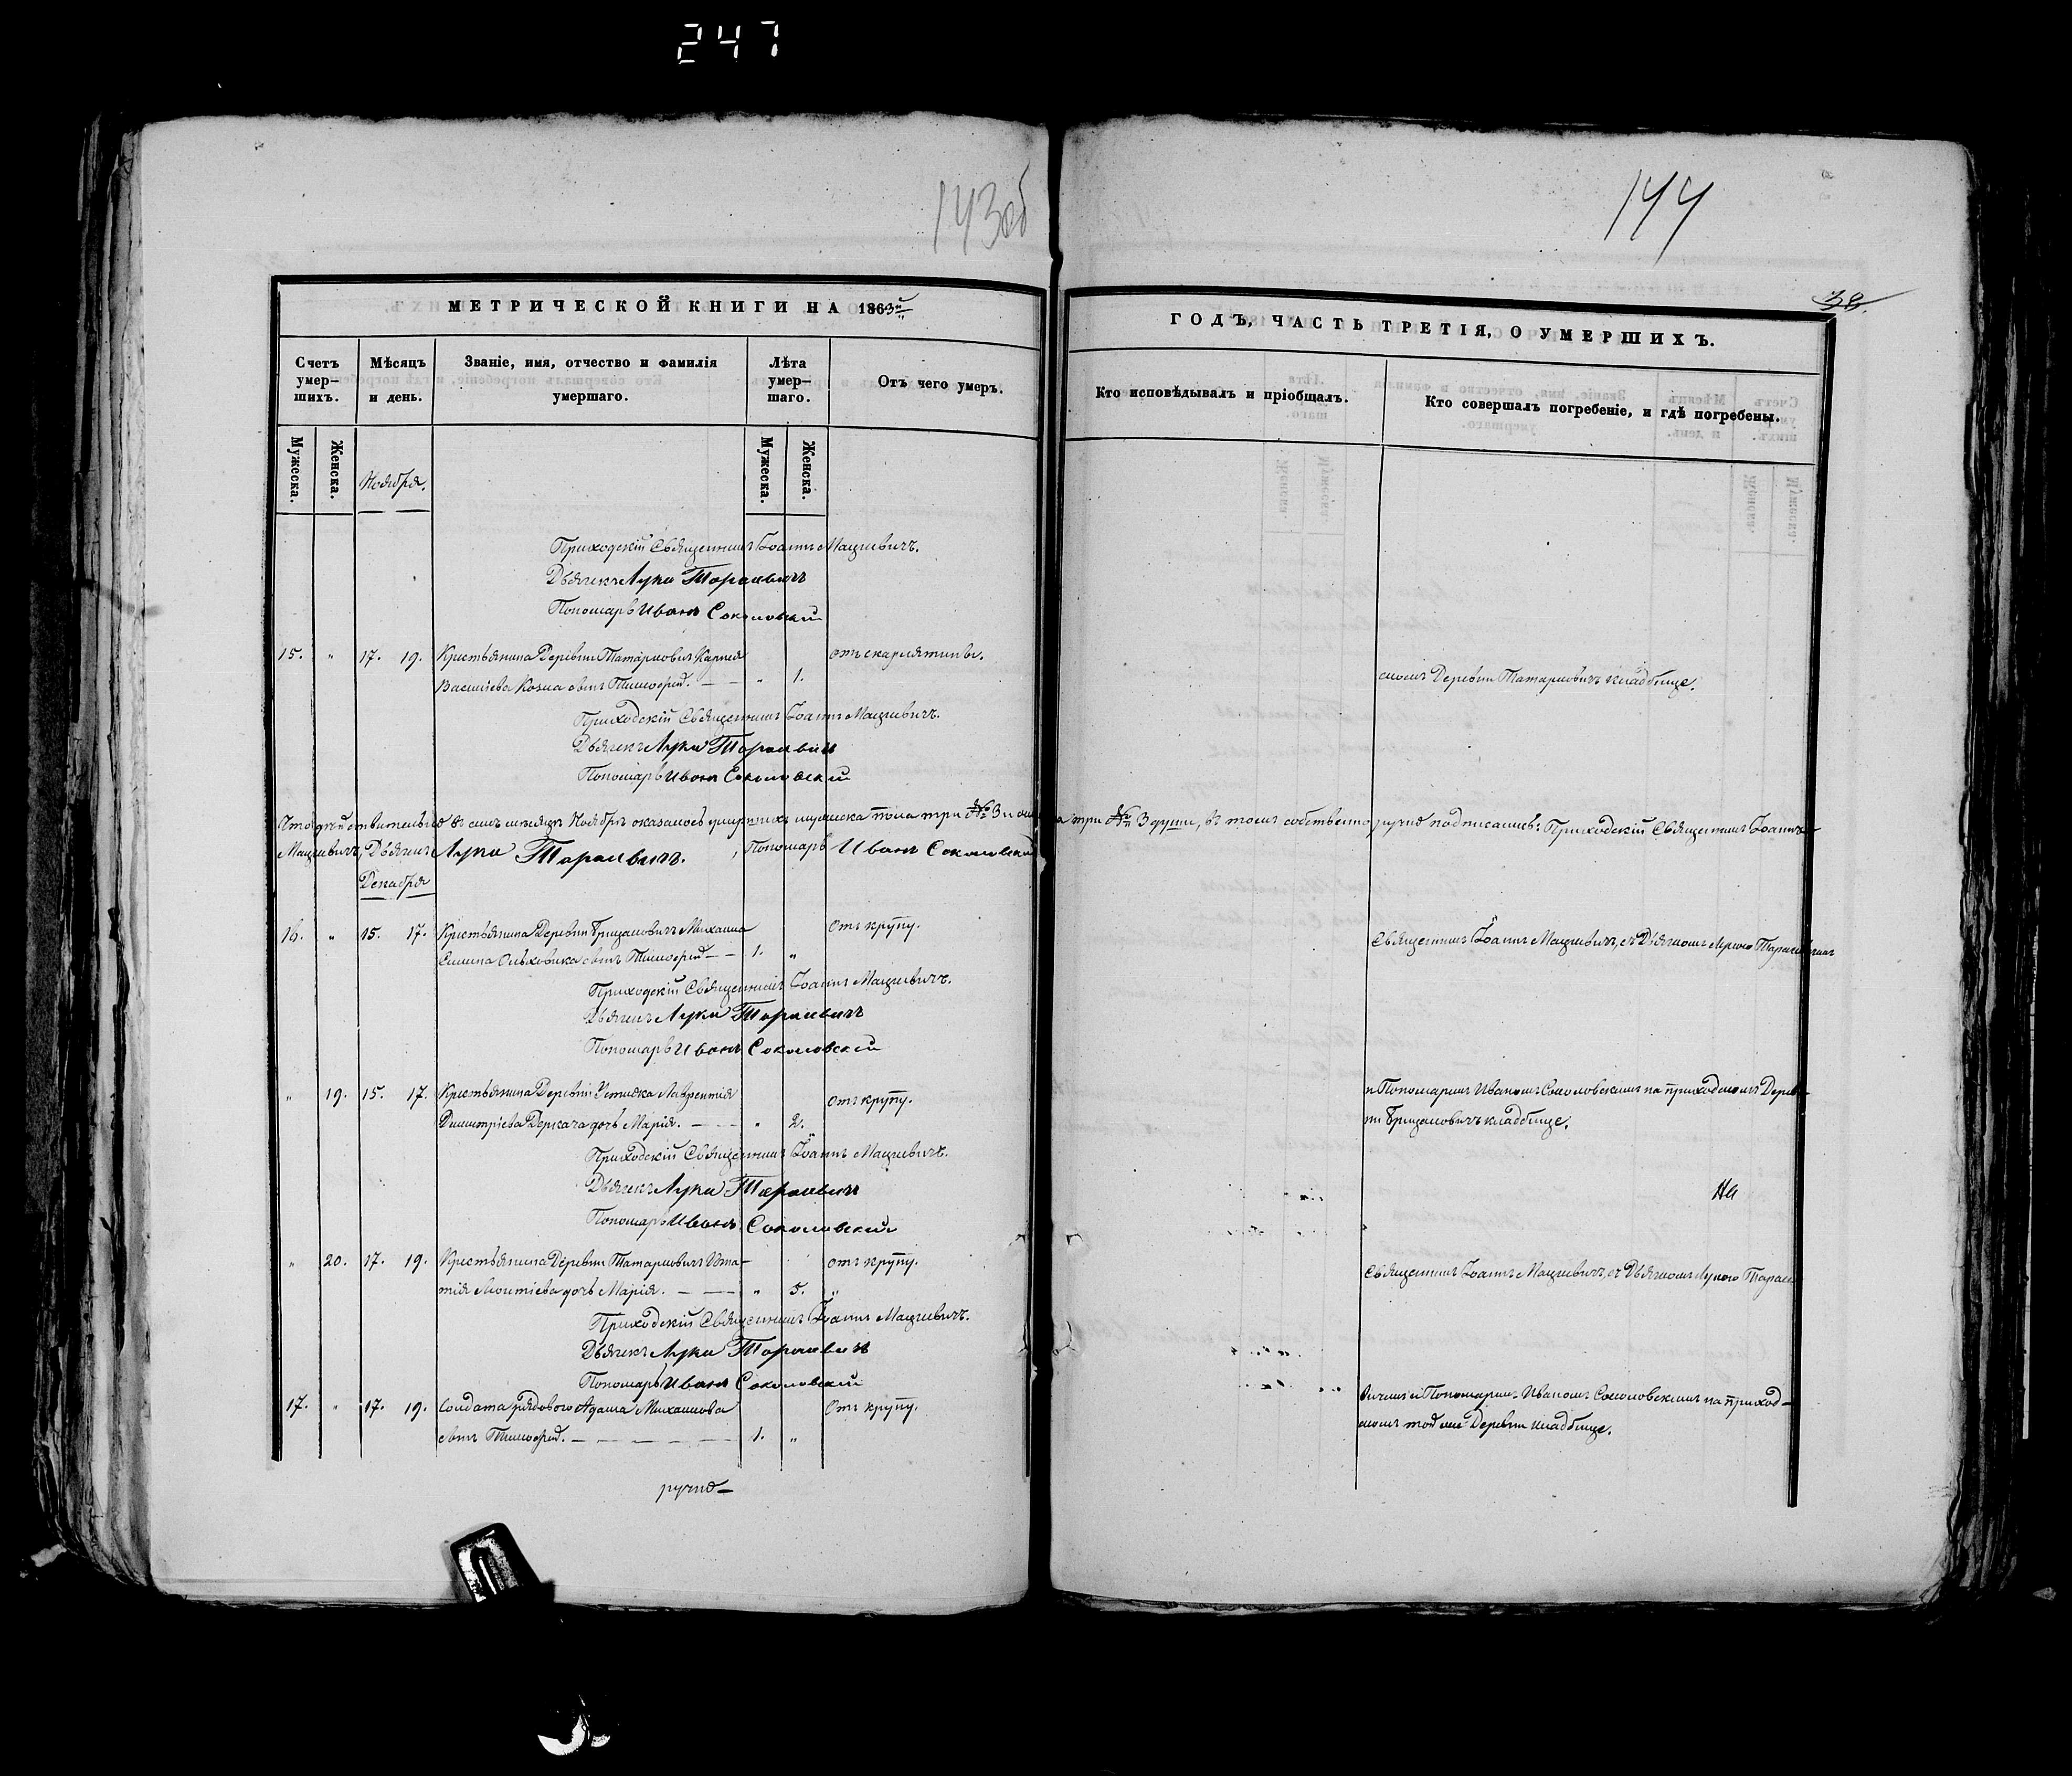 247
143об
144
38.
МЕТРИЧЕСКОЙ КНИГИ НА 1863й
ГОДЪ, ЧАСТЬ ТРЕТІЯ, О УМЕРШИХЪ.
Счетъ умер–шихъ.
Мѣсяцъ и день.
Званіе, имя, отчество и фамилія умершаго.
Лѣта умер–шаго.
Отъ чего умеръ.
Кто исповѣдывалъ и пріобщалъ.
Кто совершалъ погребеніе, и гдѣ погребены.
Мужеска.
Женска.
Ноября.
Мужеска.
Женска.
Приходскій Священникъ Іоаннъ Мацкевичъ.
Дьячекъ Лука Тарасевичъ
Пономарь Иванъ Соколовский
15. " 17. 19. Крестьянина Деревни Татариновичъ Карнея отъ скарлятины.
Василіева Козла сынъ Тимофей. — — " 1.
скомъ Деревни Татариновичъ кладбище.
Приходскій Священникъ Іоаннъ Мацкевичъ.
Дьячекъ Лука Тарасевич
Пономарь Иванъ Соколовский
Что дѣйствительно въ семъ месяцѣ Ноябрѣ оказалось умершихъ мужеска пола три № 3 и женска три № 3 души, въ томъ собственноручно подписались: Приходскій Священникъ Іоаннъ
Мацкевичъ, Дьячекъ Лука Тарасевичъ. , Пономарь Иванъ Соколовский
Декабря
16. " 15. 17. Крестьянина Деревни Грицановичъ Михаила Отъ крупу.
сынъ Тимофей — — 1. "
Священникъ Іоаннъ Мацкевичъ, съ Дьячкомъ Лукою Тарасевичемъ
Приходскій Священникъ Іоаннъ Мацкевичъ.
Дьячекъ Лука Тарасевичъ
Пономарь Иванъ Соколовский
" 19. 15. 17. Крестьянина Деревни Лаврентія отъ крупу.
Димитріева Деркача дочь Марія. — — — " 2.
и Пономаремъ Иваномъ Соколовскимъ на приходскомъ Дерев–
ни Грицановичъ кладбище.
Приходскій Священникъ Іоаннъ Мацкевичъ.
Дьячекъ Лука Тарасевич
На
Пономарь Иванъ Соколовский
" 20. 17. 19. Крестьянина Деревни Татариновичъ Игна– отъ крупу.
тія дочь Марія. — — — " 5. "
Священникъ Іоаннъ Мацкевичъ, съ Дьячкомъ Лукою Тарасе
Приходскій Священникъ Іоаннъ Мацкевичъ.
Дьячекъ Лука Тарасевич
Пономарь Иванъ Соколовский
17. " 17. 19. Солдата рядового Адама Михаилова Отъ крупу.
сынъ Тимофей. — — — — — — 1. "
вичемъ и Пономаремъ Иваномъ Соколовскимъ на приход–
скомъ той же Деревни кладбище.
ручно–